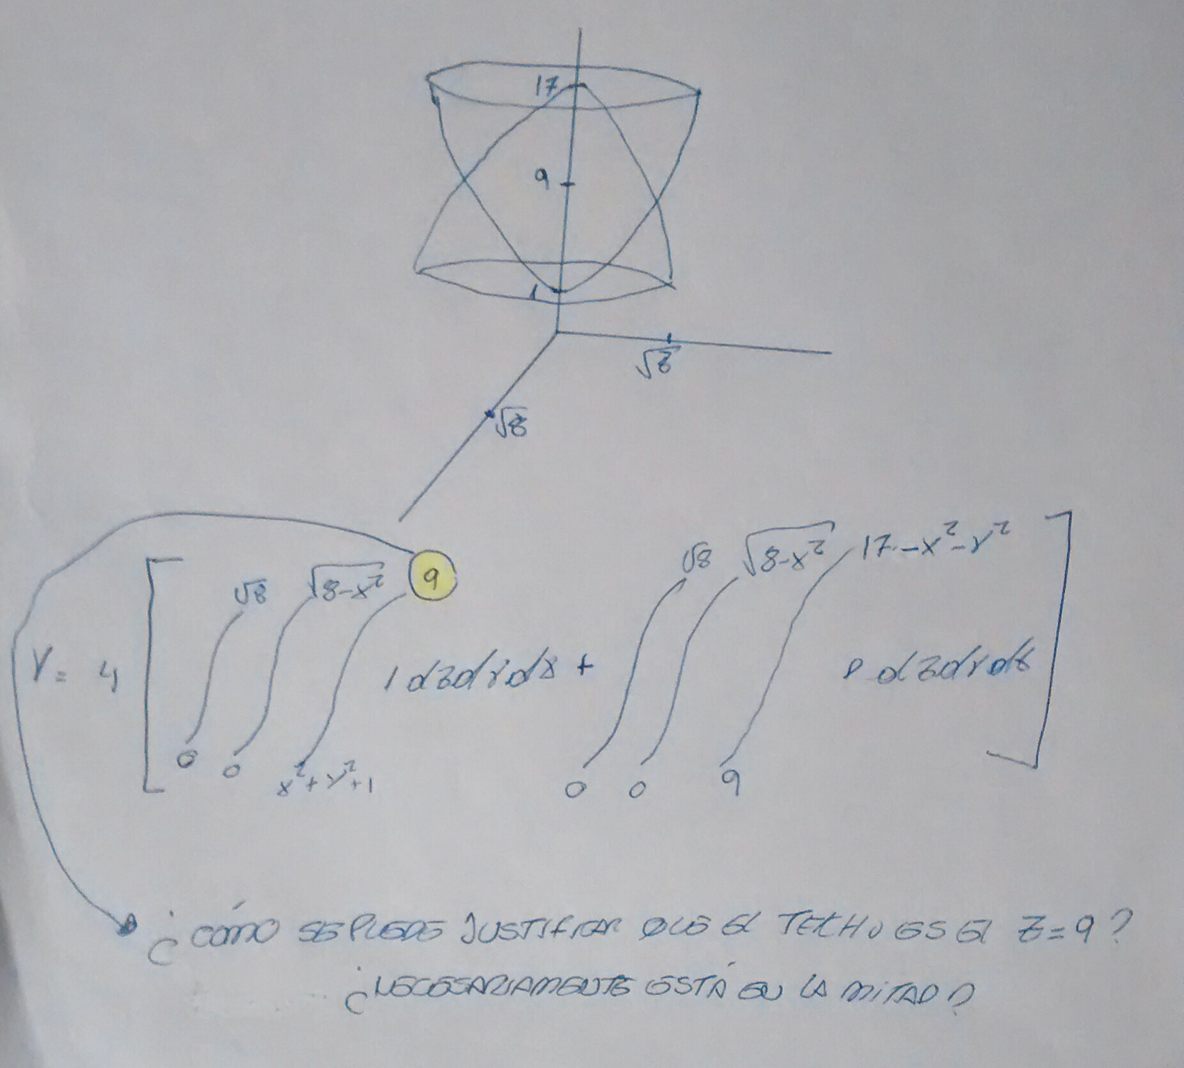 17
9
1
√8
√8
V = 4 [ ∫₀^√8 ∫₀^√(8-x²) ∫_{x²+y²+1}^9 1 dzdydx + ∫₀^√8 ∫₀^√(8-x²) ∫₉^{17-x²-y²} dzdydx ]
¿CÓMO SE PUEDE JUSTIFICAR QUE EL TECHO ES EL Z=9?
¿NECESARIAMENTE ESTÁ EN LA MITAD?